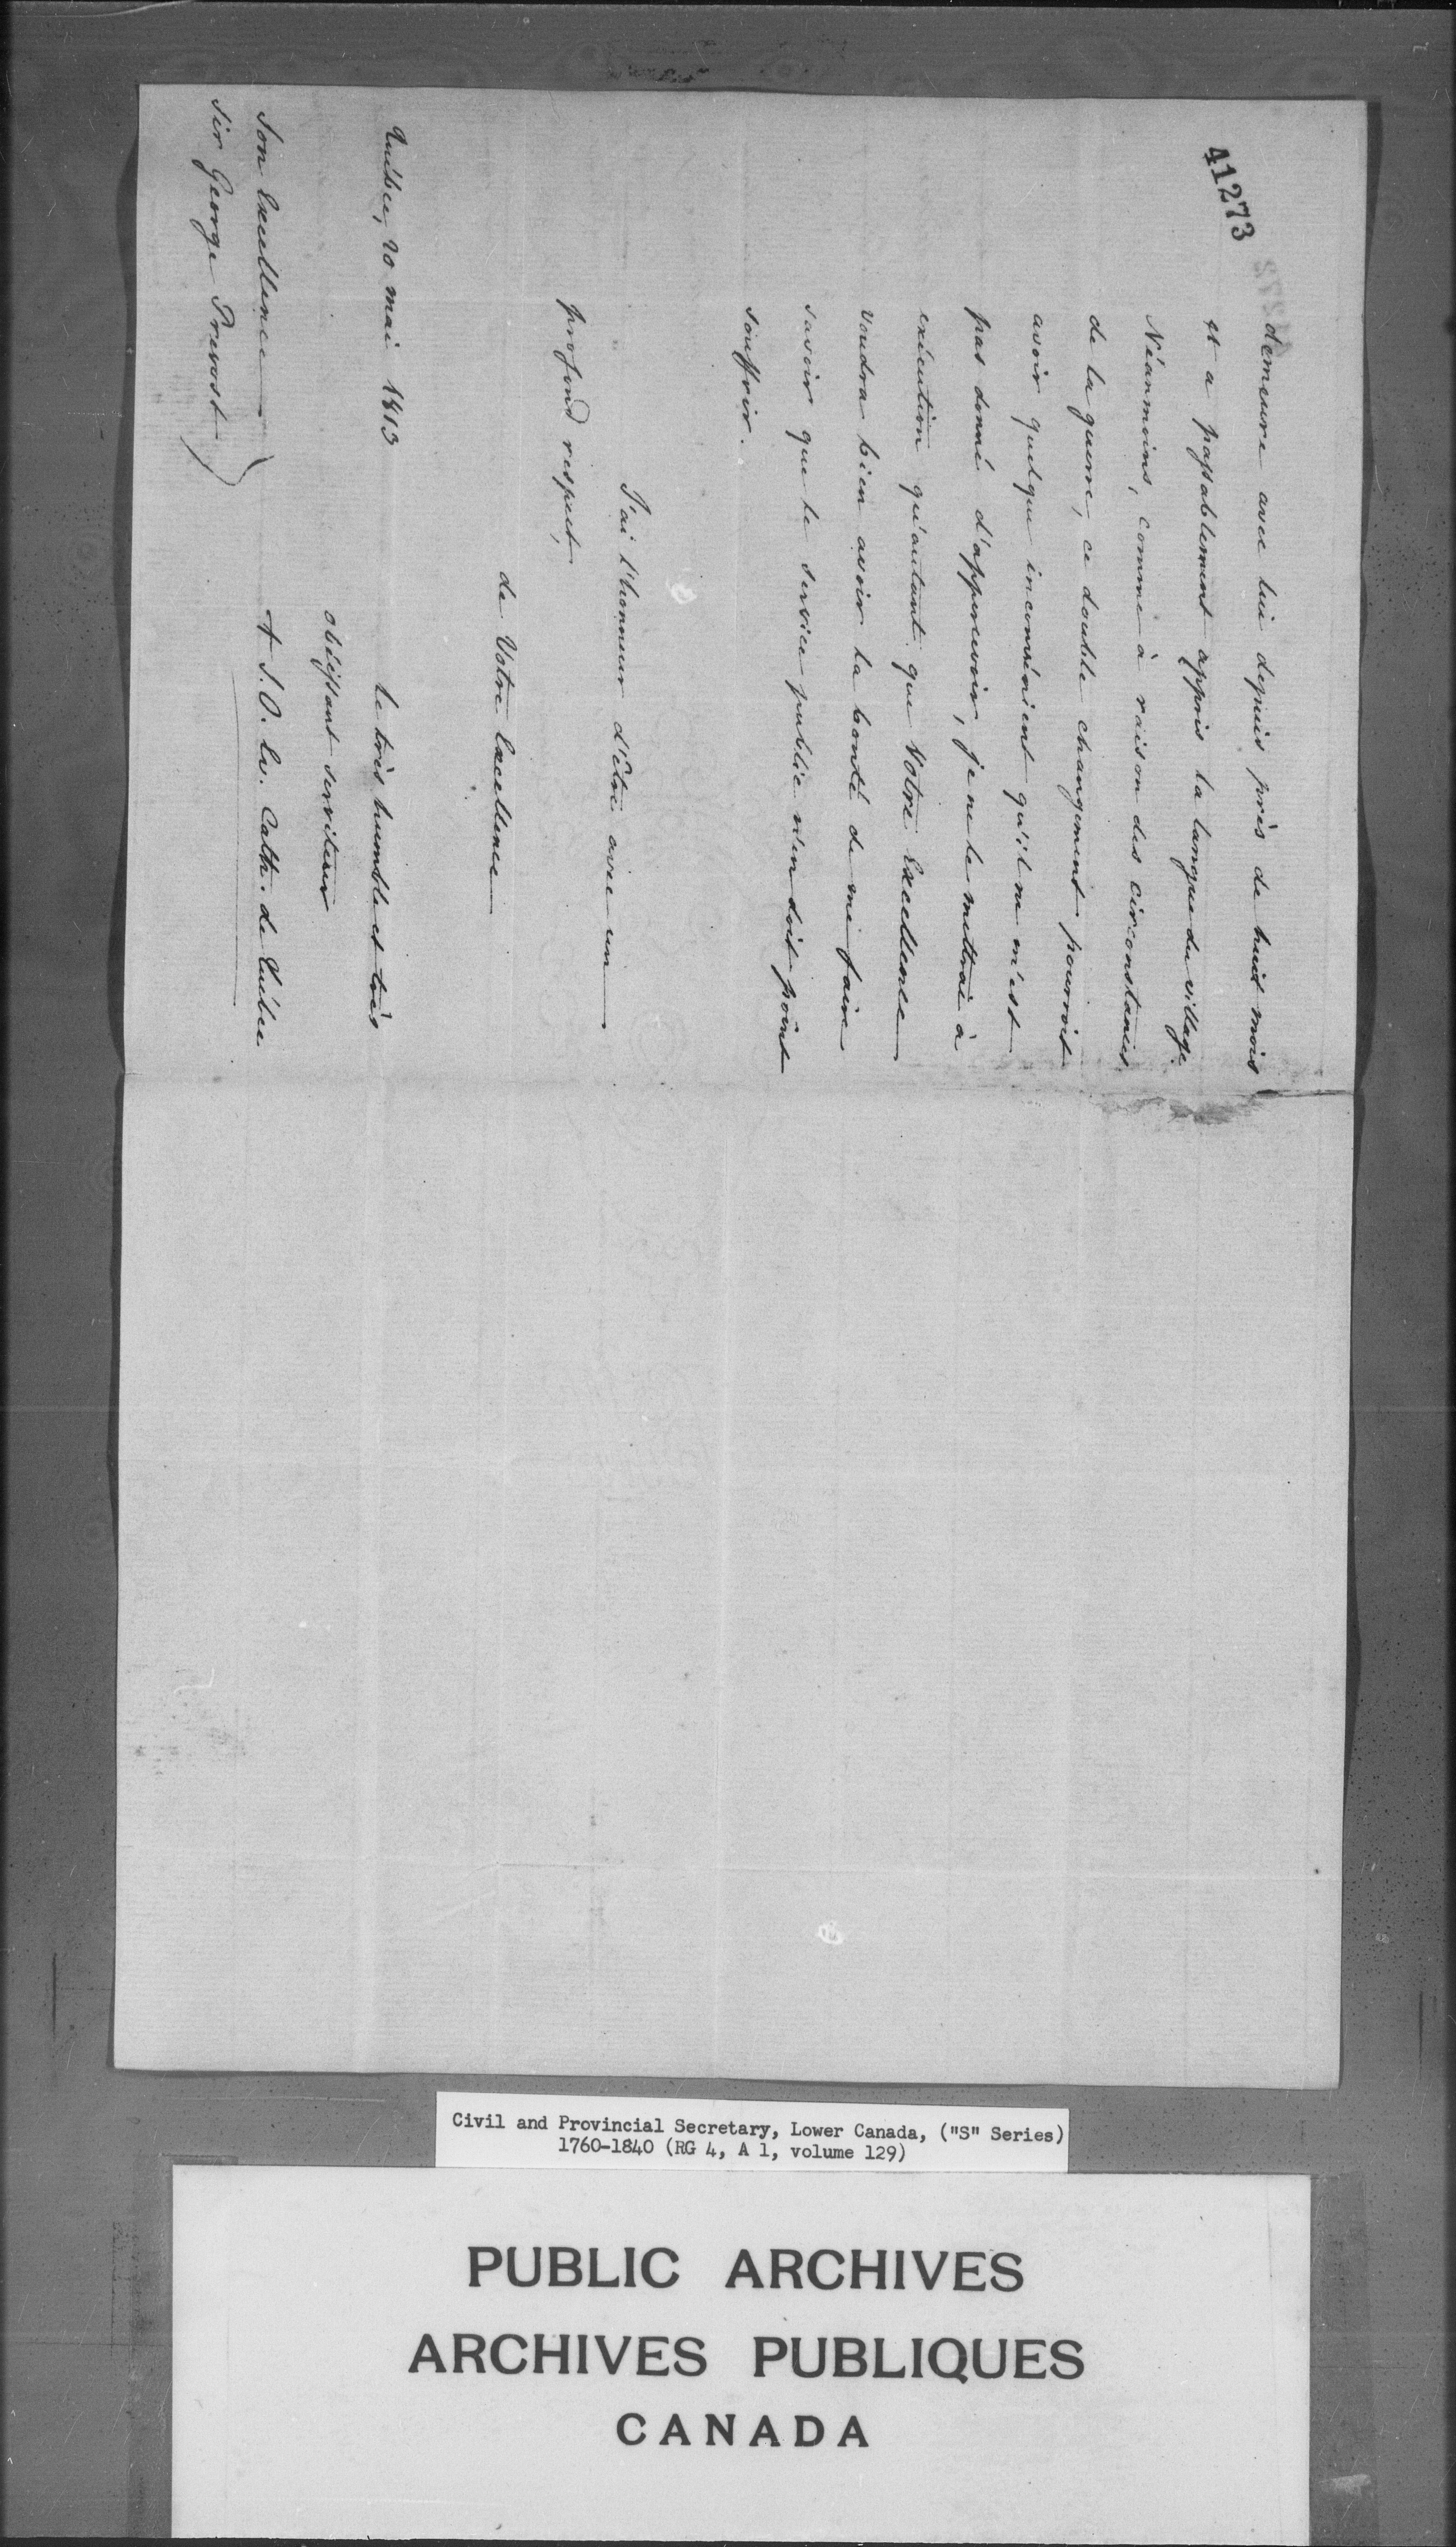 41273
demeure avec lui depuis près de huit mois
et a passablement appris la langue du village.
Néanmoins, comme à raison des circonstances
de la guerre, ce double changement pourroit
avoir quelque inconvénient qu'il ne m'est
pas donné d'appercevoir, je ne le mettrai à
exécution qu'autant que Votre Excellence
voudra bien avoir la bonté de me faire
savoir que le service public n'en doit point
souffrir.
J'ai l'honneur d'être avec un
profond respect,
de Votre Excellence
le très humble et très
obéissant serviteur
Québec, 20 mai 1813
+ J. O. Ev. Cath. de Québec
Son Excellence
Sir George Prevost
Civil and Provincial Secretary, Lower Canada, ("S" Series)
1760-1840 (RG 4, A 1, volume 129)
PUBLIC ARCHIVES
ARCHIVES PUBLIQUES
CANADA